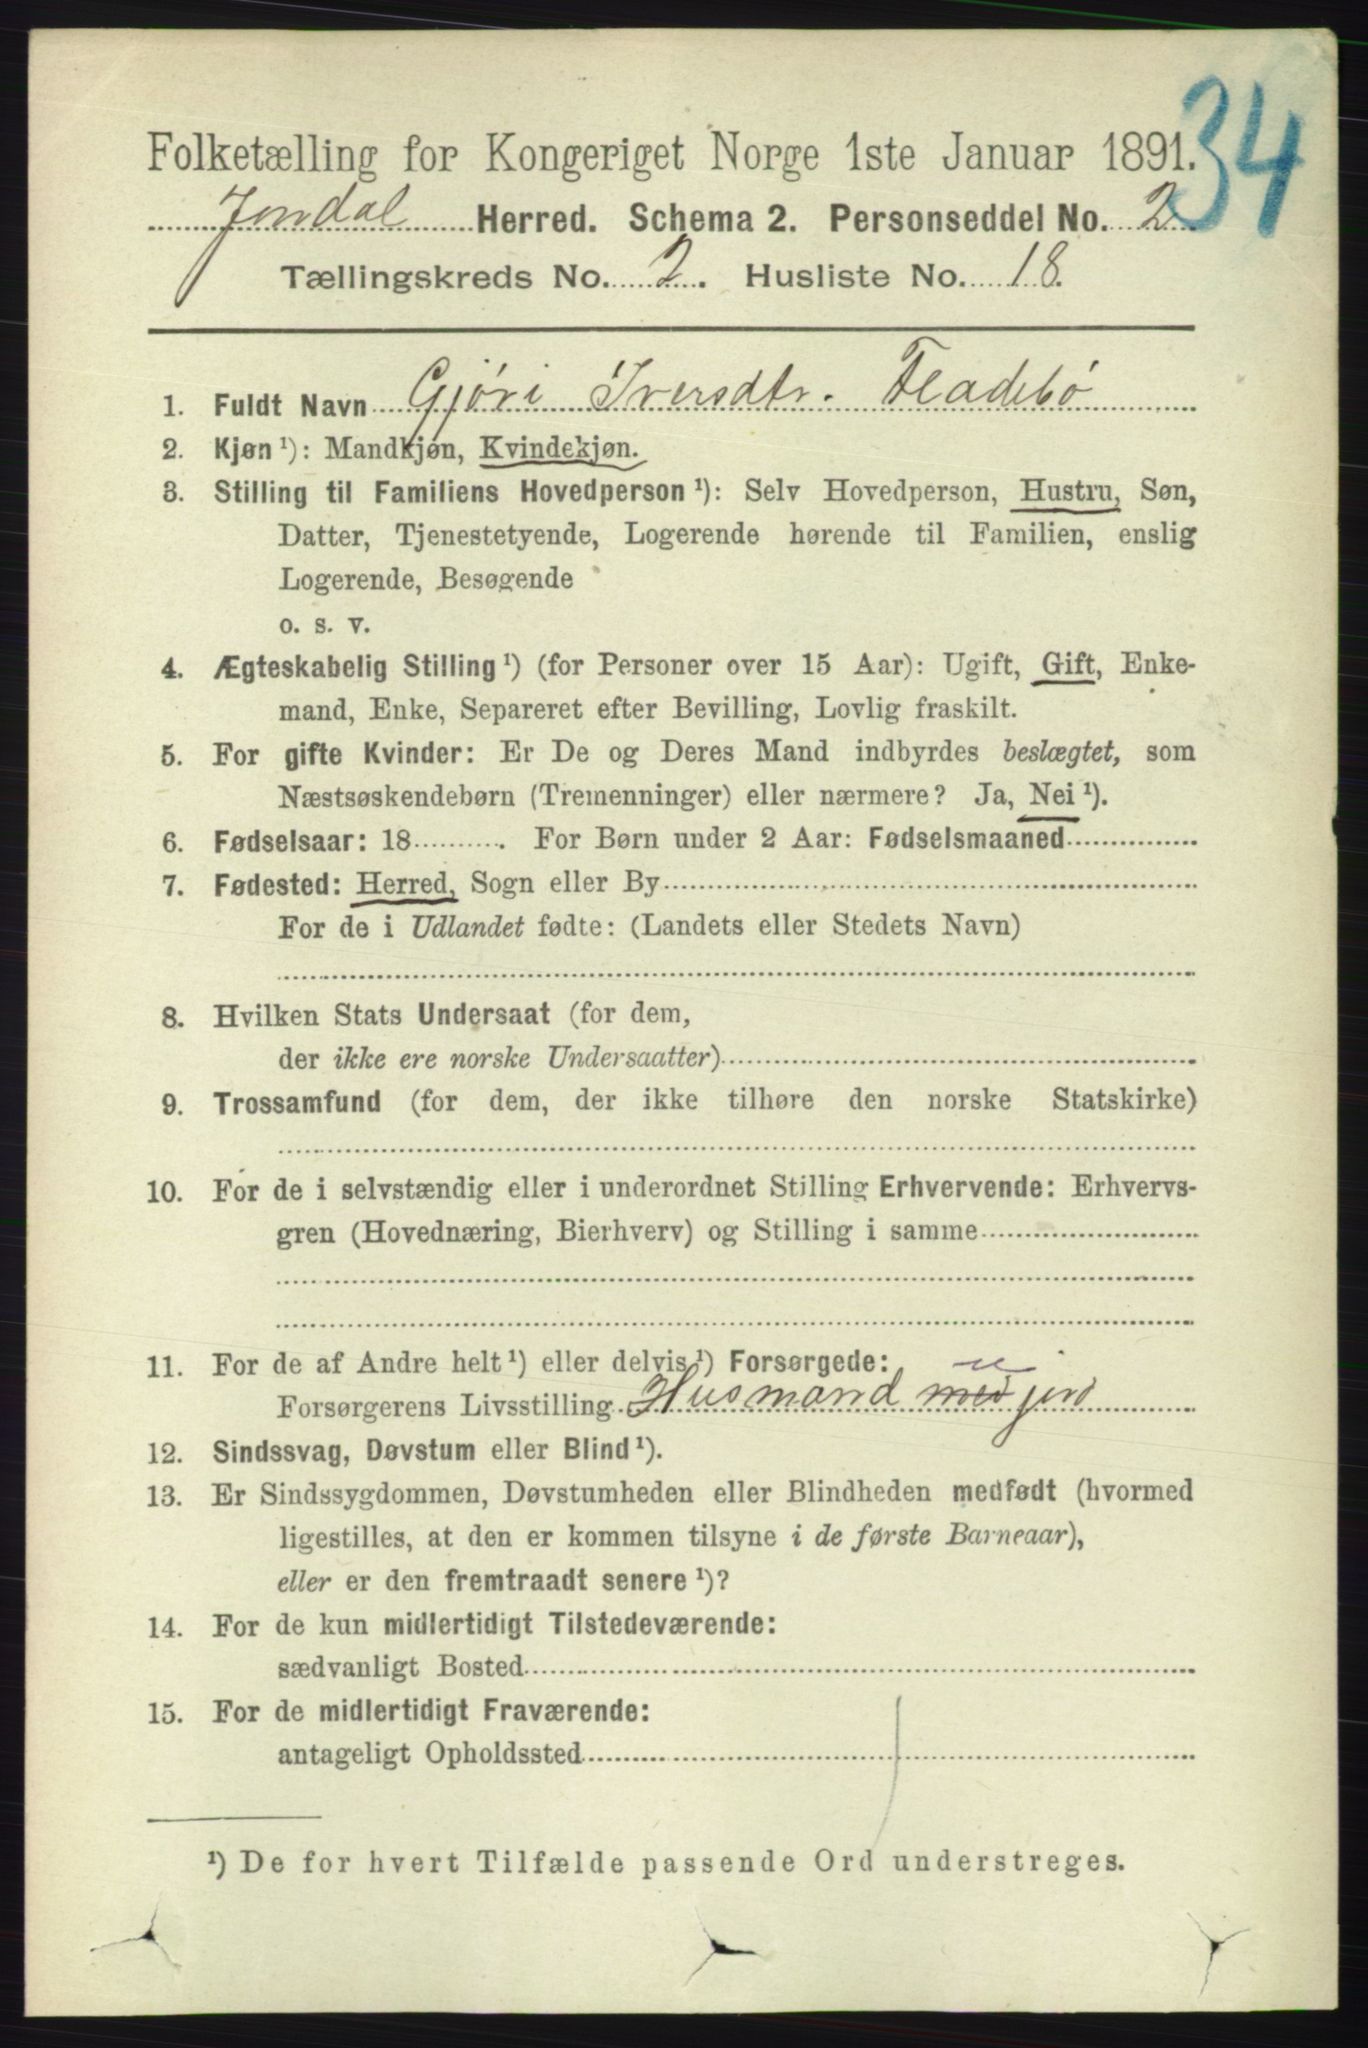 34
Folketælling for Kongeriget Norge 1ste Januar 1891.
Jondal Herred. Schema 2. Personseddel No. 2.
Tællingskreds No. 2. Husliste No. 18.
1. Fuldt Navn Gjøri Iversdtr. Fladebø
2. Kjøn ¹): Mandkjøn, Kvindekjøn.
3. Stilling til Familiens Hovedperson ¹): Selv Hovedperson, Hustru, Søn,
Datter, Tjenestetyende, Logerende hørende til Familien, enslig
Logerende, Besøgende
o. s. v.
4. Ægteskabelig Stilling ¹) (for Personer over 15 Aar): Ugift, Gift, Enke-
mand, Enke, Separeret efter Bevilling, Lovlig fraskilt.
5. For gifte Kvinder: Er De og Deres Mand indbyrdes beslægtet, som
Næstsøskendebørn (Tremenninger) eller nærmere? Ja, Nei ¹).
6. Fødselsaar: 18 . For Børn under 2 Aar: Fødselsmaaned
7. Fødested: Herred, Sogn eller By
For de i Udlandet fødte: (Landets eller Stedets Navn)
8. Hvilken Stats Undersaat (for dem,
der ikke ere norske Undersaatter)
9. Trossamfund (for dem, der ikke tilhøre den norske Statskirke)
10. For de i selvstændig eller i underordnet Stilling Erhvervende: Erhvervs-
gren (Hovednæring, Bierhverv) og Stilling i samme
11. For de af Andre helt ¹) eller delvis ¹) Forsørgede:
u
Forsørgerens Livsstilling Husmand med jord
12. Sindssvag, Døvstum eller Blind ¹).
13. Er Sindssygdommen, Døvstumheden eller Blindheden medfødt (hvormed
ligestilles, at den er kommen tilsyne i de første Barneaar),
eller er den fremtraadt senere ¹)?
14. For de kun midlertidigt Tilstedeværende:
sædvanligt Bosted
15. For de midlertidigt Fraværende:
antageligt Opholdssted
¹) De for hvert Tilfælde passende Ord understreges.